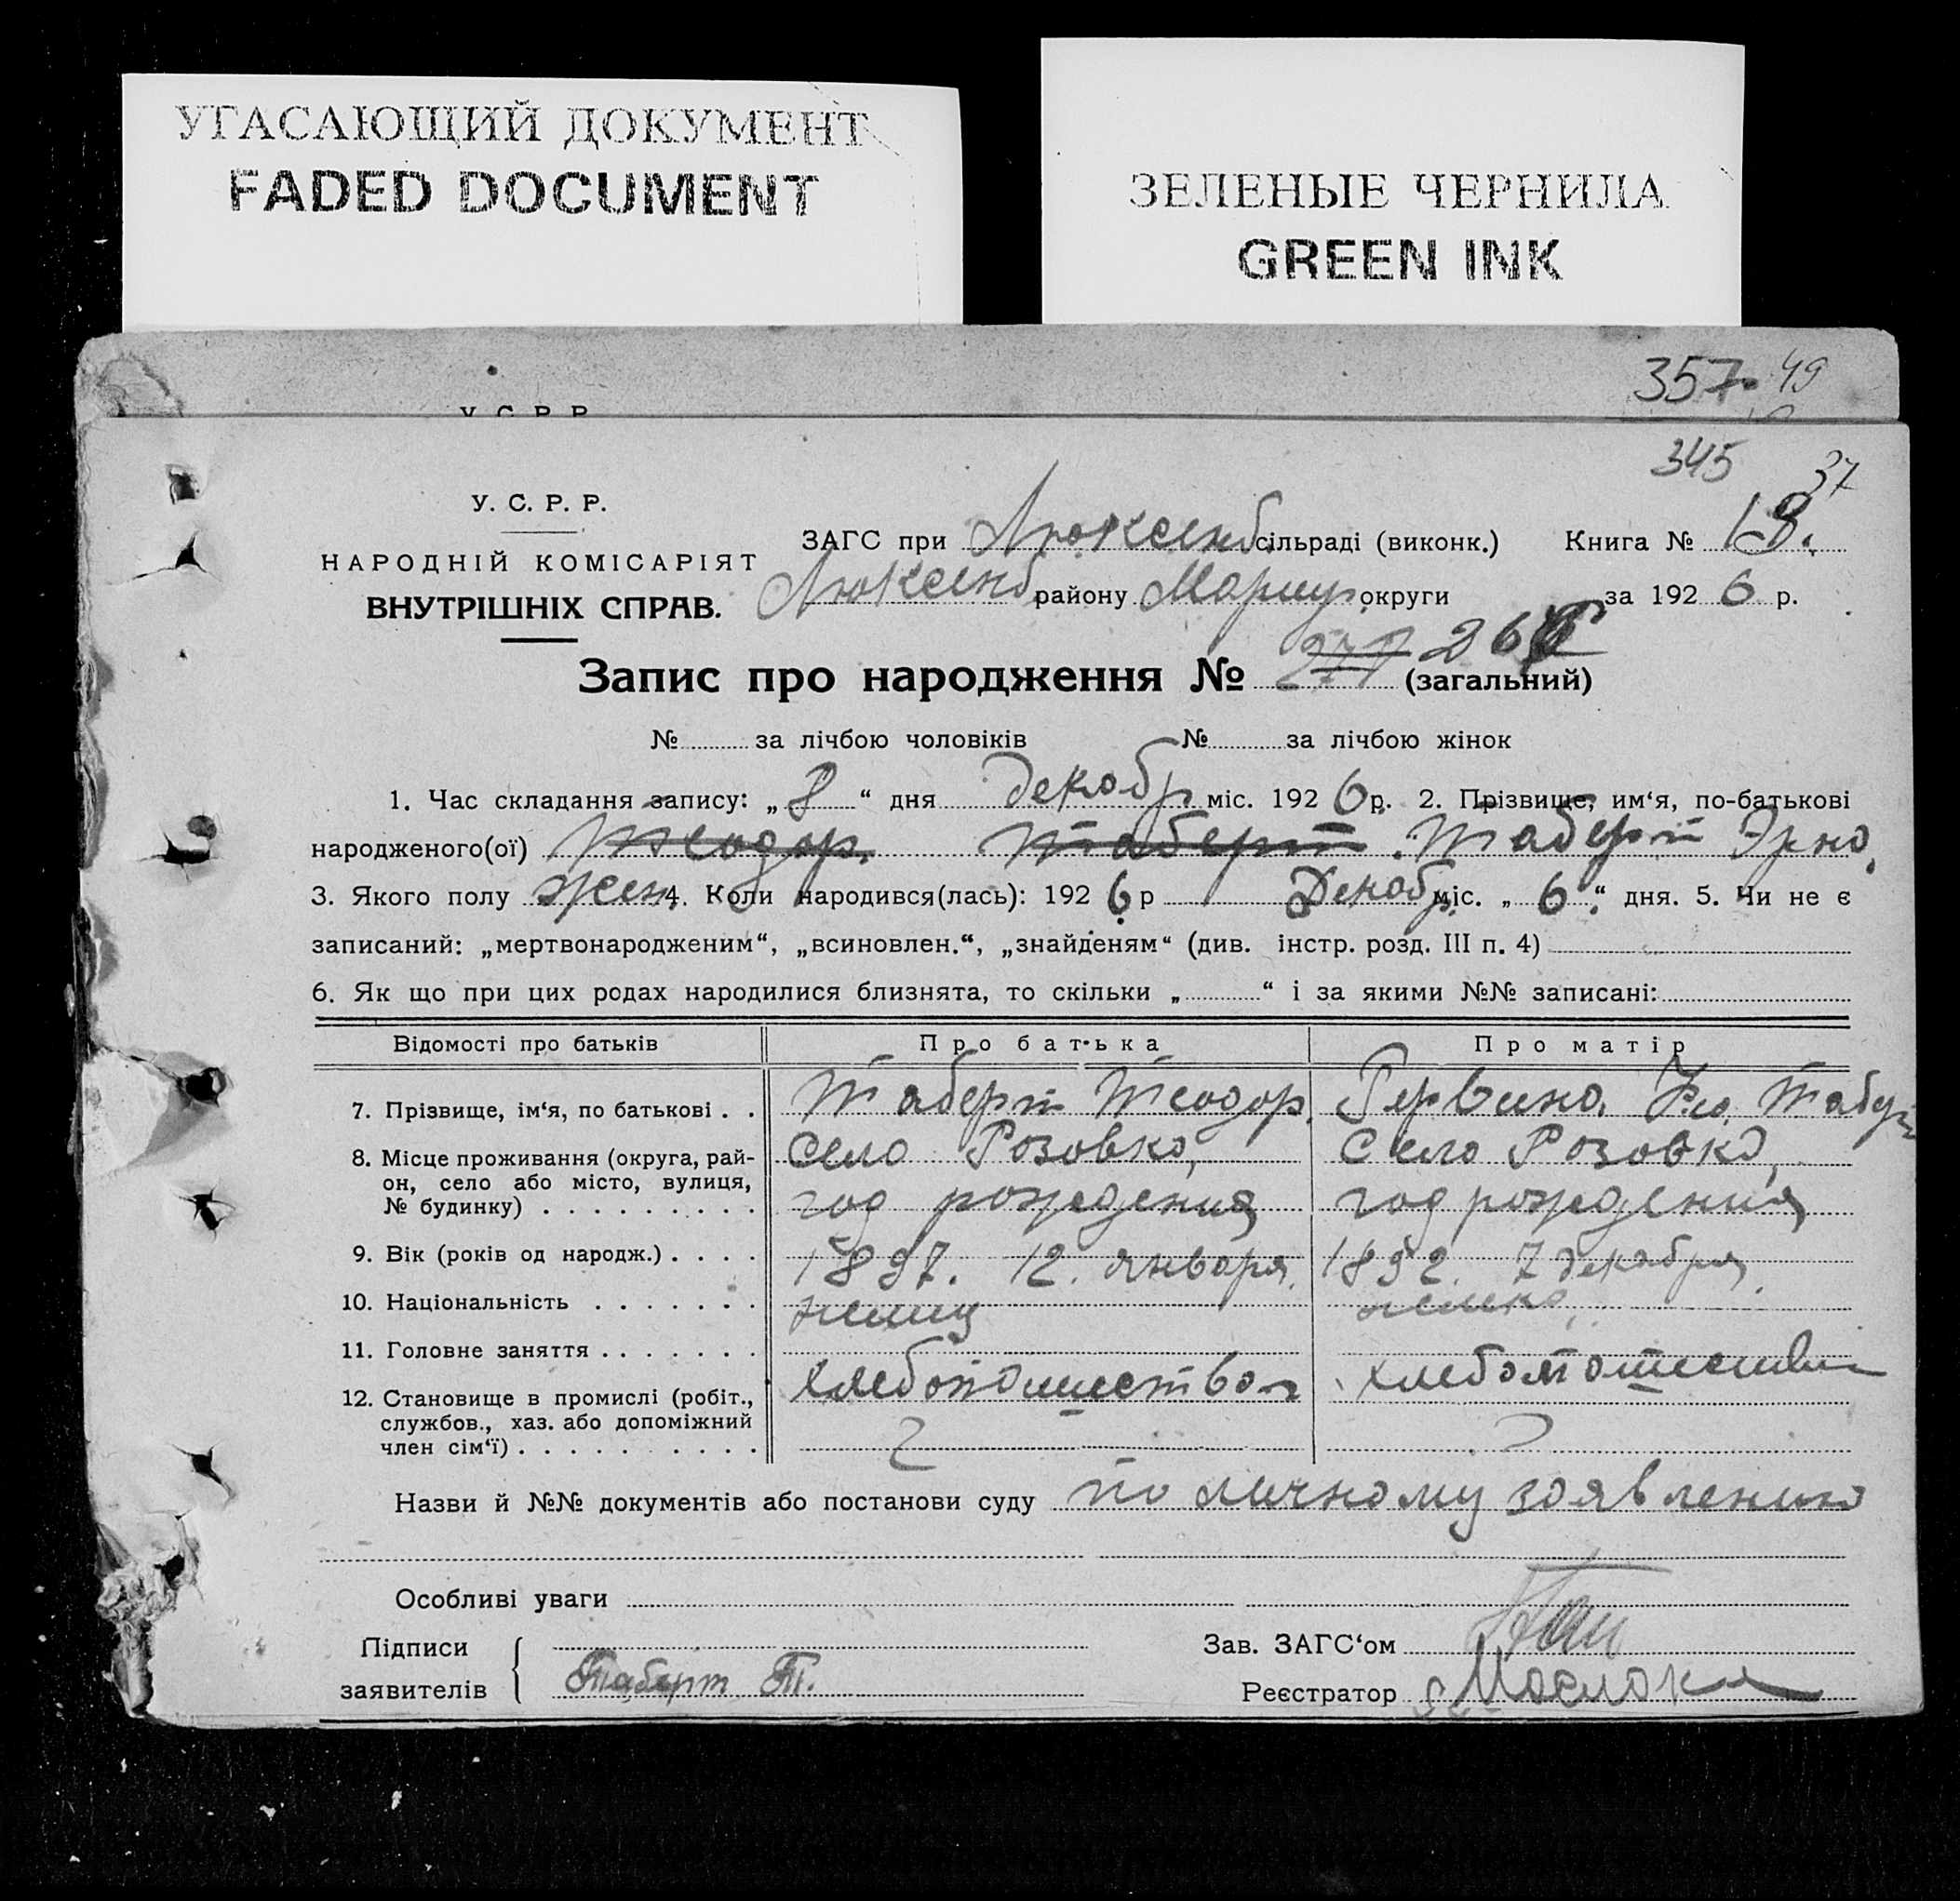 УГАСАЮЩИЙ ДОКУМЕНТ
FADED DOCUMENT
ЗЕЛЕНЫЕ ЧЕРНИЛА
GREEN INK
357 49
У. С. Р. Р.
345
37
У. С. Р. Р.
НАРОДНІЙ КОМІСАРІЯТ
ВНУТРІШНІХ СПРАВ.
ЗАГС при Люксемб. сільраді (виконк.) Книга № 18.
Люксемб. району Мариуп. округи за 1926 р.
Запис про народження № 277 26 (загальний)
№ за лічбою чоловіків № за лічбою жінок
1. Час складання запису: „8“ дня декабр міс. 1926 р. 2. Прізвище, им‘я, по-батькові
народженого(ої) Теодор. Таберт. Таберт Эрна.
3. Якого полу жен. 4. Коли народився(лась): 1926 р Декабр. міс. „6“ дня. 5. Чи не є
записаний: „мертвонародженим“, „всиновлен.“, „знайденям“ (див. інстр. розд. III п. 4)
6. Як що при цих родах народилися близнята, то скільки „ “ і за якими №№ записані:
Відомості про батьків Про батька Про матір
7. Прізвище, ім‘я, по батькові . . Таберт Теодор. Табер
8. Місце проживання (округа, рай- Село Розовка, Село Розовка,
он, село або місто, вулиця,
№ будинку) . . . . . . . . . год рождения год рождения
9. Вік (років од народж.) . . . . 1897. 12. января. 1892. 7 декабря.
10. Національність . . . . . . . немец немка
11. Головне заняття . . . . . . . хлебопашество хлебопашество
12. Становище в промислі (робіт.,
службов., хаз. або допоміжний
член сім‘ї) . . . . . . . . .
Назви й №№ документів або постанови суду по личному заявлению
Особливі уваги
Підписи
заявителів Таберт Т.
Зав. ЗАГС‘ом
Реєстратор